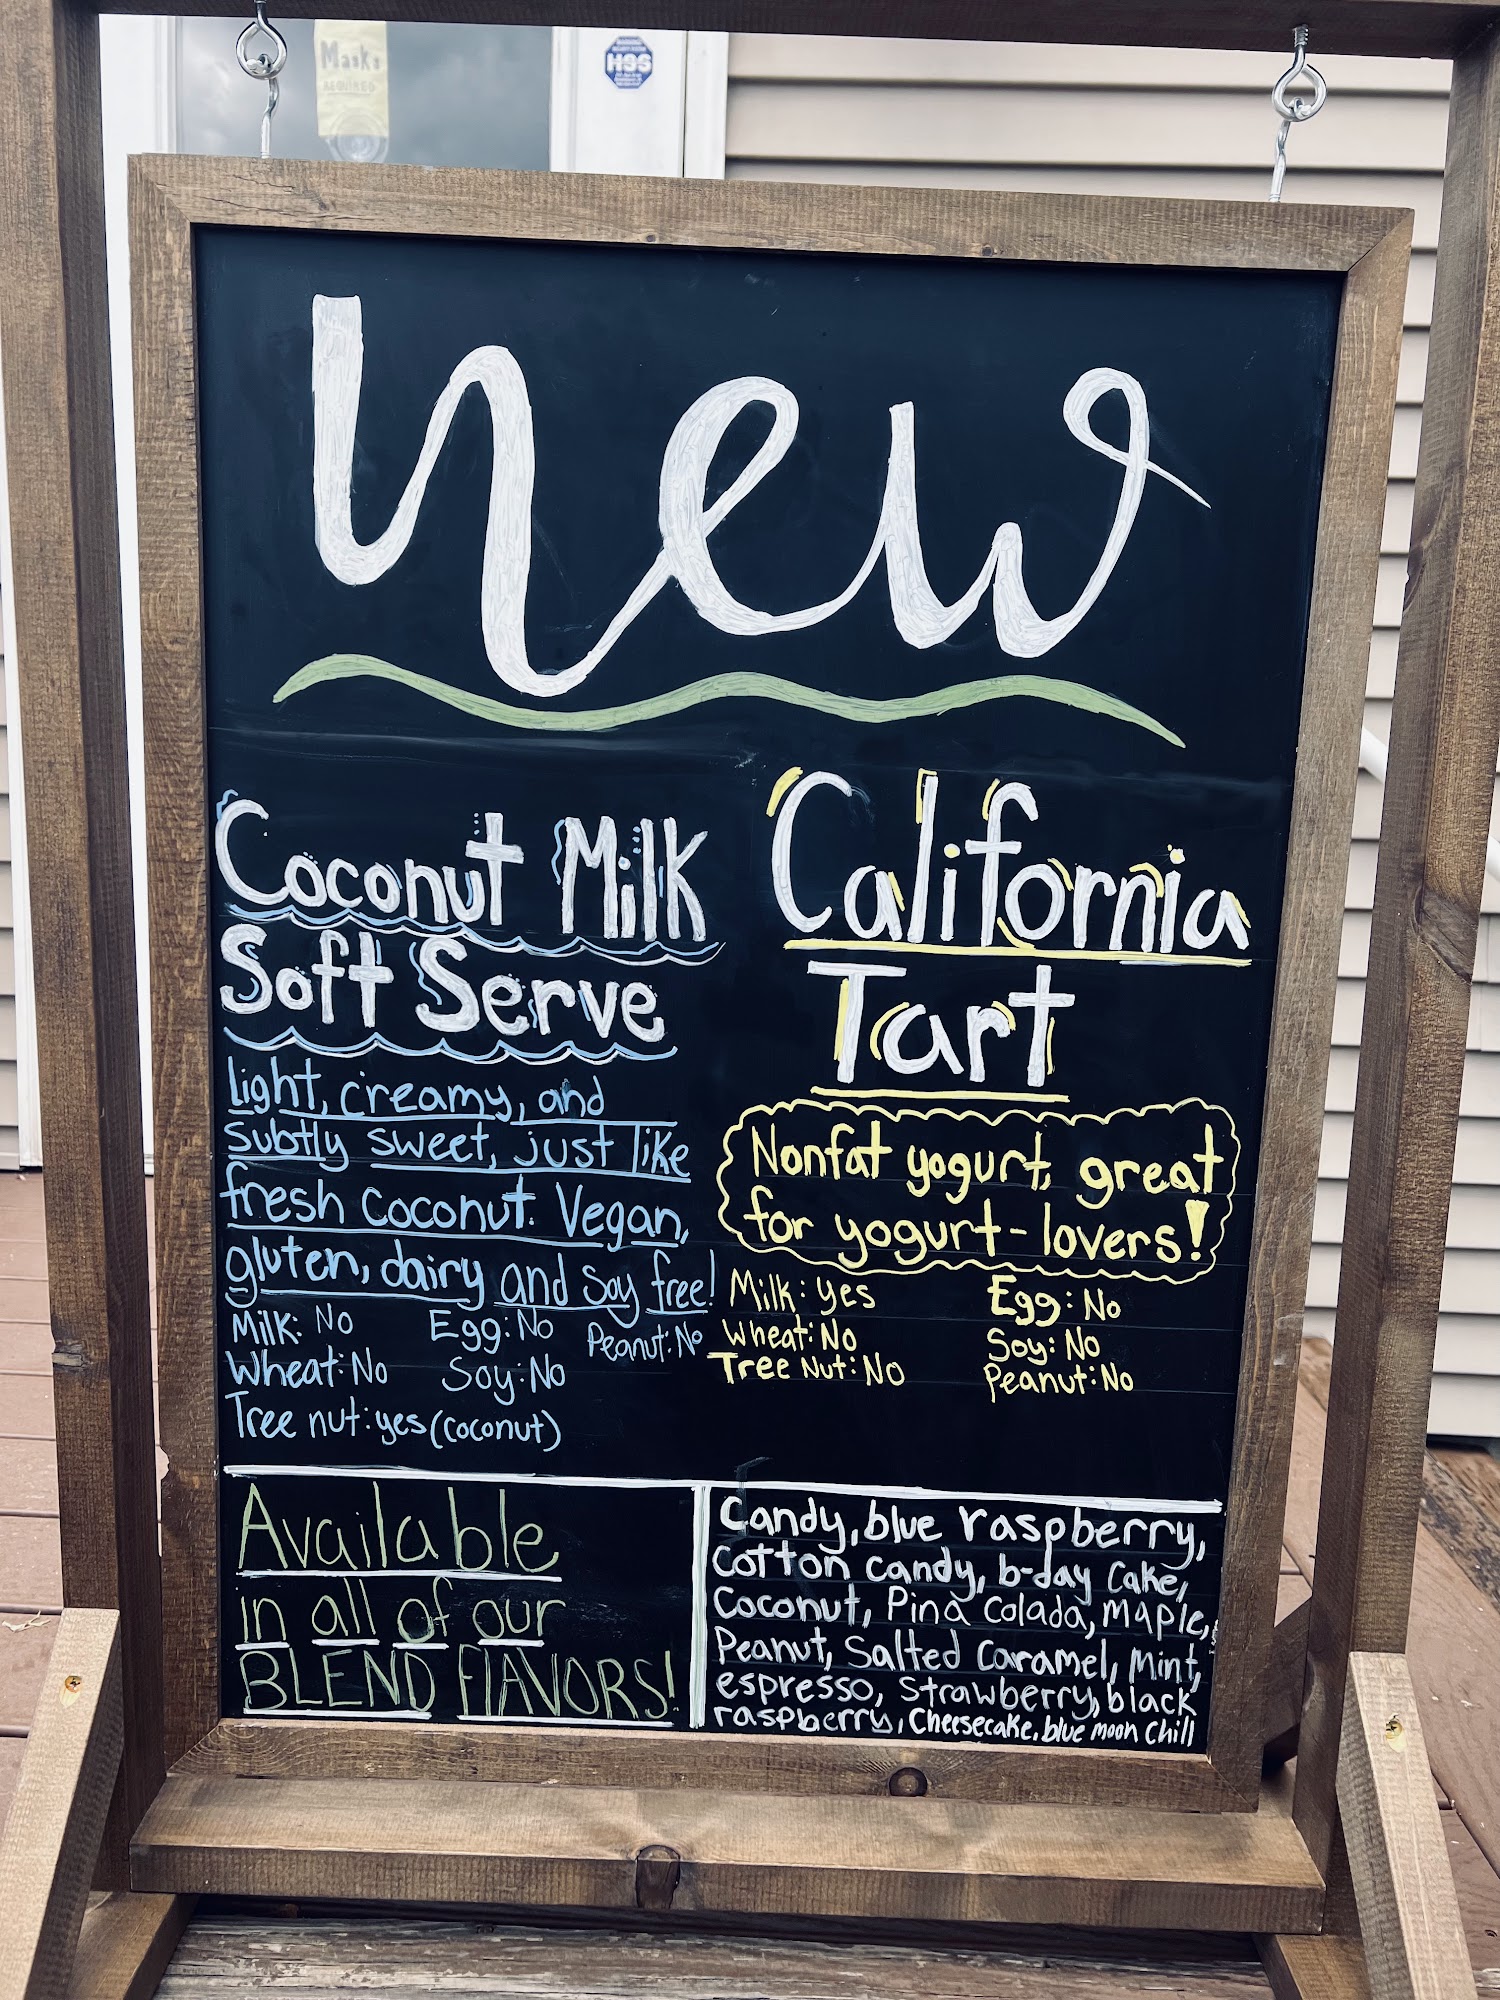 Masks
REQUIRED
new
Coconut Milk
Soft Serve
Light, creamy, and
subtly sweet, just like
fresh coconut. Vegan,
gluten, dairy and soy free!
Milk: No Egg: No Peanut: No
Wheat: No Soy: No
Tree nut: yes (coconut)
California
Tart
Nonfat yogurt, great
for yogurt-lovers!
Milk: yes Egg: No
Wheat: No Soy: No
Tree Nut: No Peanut: No
Available
in all of our
BLEND FLAVORS!
Candy, blue raspberry,
Cotton candy, b-day Cake,
Coconut, Pina Colada, Maple,
Peanut, Salted Caramel, Mint,
espresso, Strawberry, black
raspberry, Cheesecake, blue moon Chill